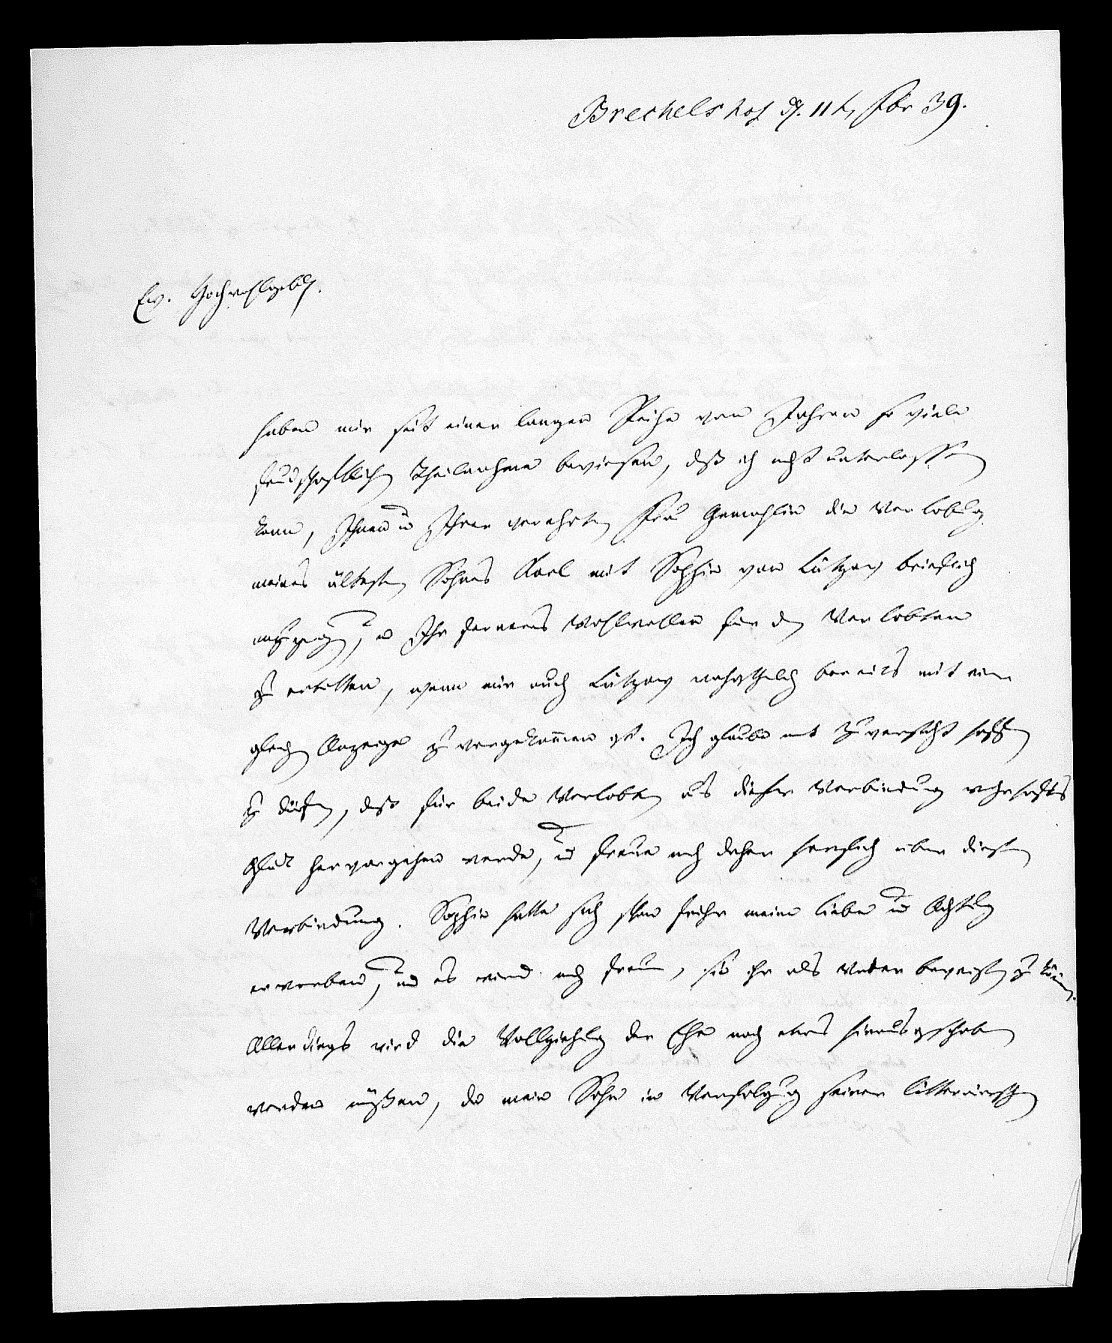 Brechelshof d. 11t, Fbr 39.
Ew. Hochwohlgeb.
haben mir seit einer langen Reihe von Jahren so viele
freundschaftliche Theilnahme bewiesen, daß ich nicht unterlassen
kann, Ihnen u Ihrer verehrten Frau Gemahlin die Verlobung
meines ältesten Sohnes Karl mit Sophie von Lützow brieflich
anzuzeigen, u Ihr ferneres Wohlwollen für die Verlobten
zu erbitten, wenn mir auch Lützow wahrscheinlich bereits mit einer
gleichen Anzeige zuvorgekommen ist. Ich glaube mit Zuversicht hoffen
zu dürfen, daß für beide Verlobten aus dieser Verbindung wahrhaftes
Glück hervorgehen werde, u freue mich daher herzlich über diese
Verbindung. Sophie hatte sich schon früher meine Liebe u Achtung
erworben, und es wird mich freuen, sie ihr als Vater beweisen zu können.
Allerdings wird die Vollziehung der Ehe noch etwas hinausgeschoben
werden müßen, da mein Sohn in Verfolgung seiner litterarischen